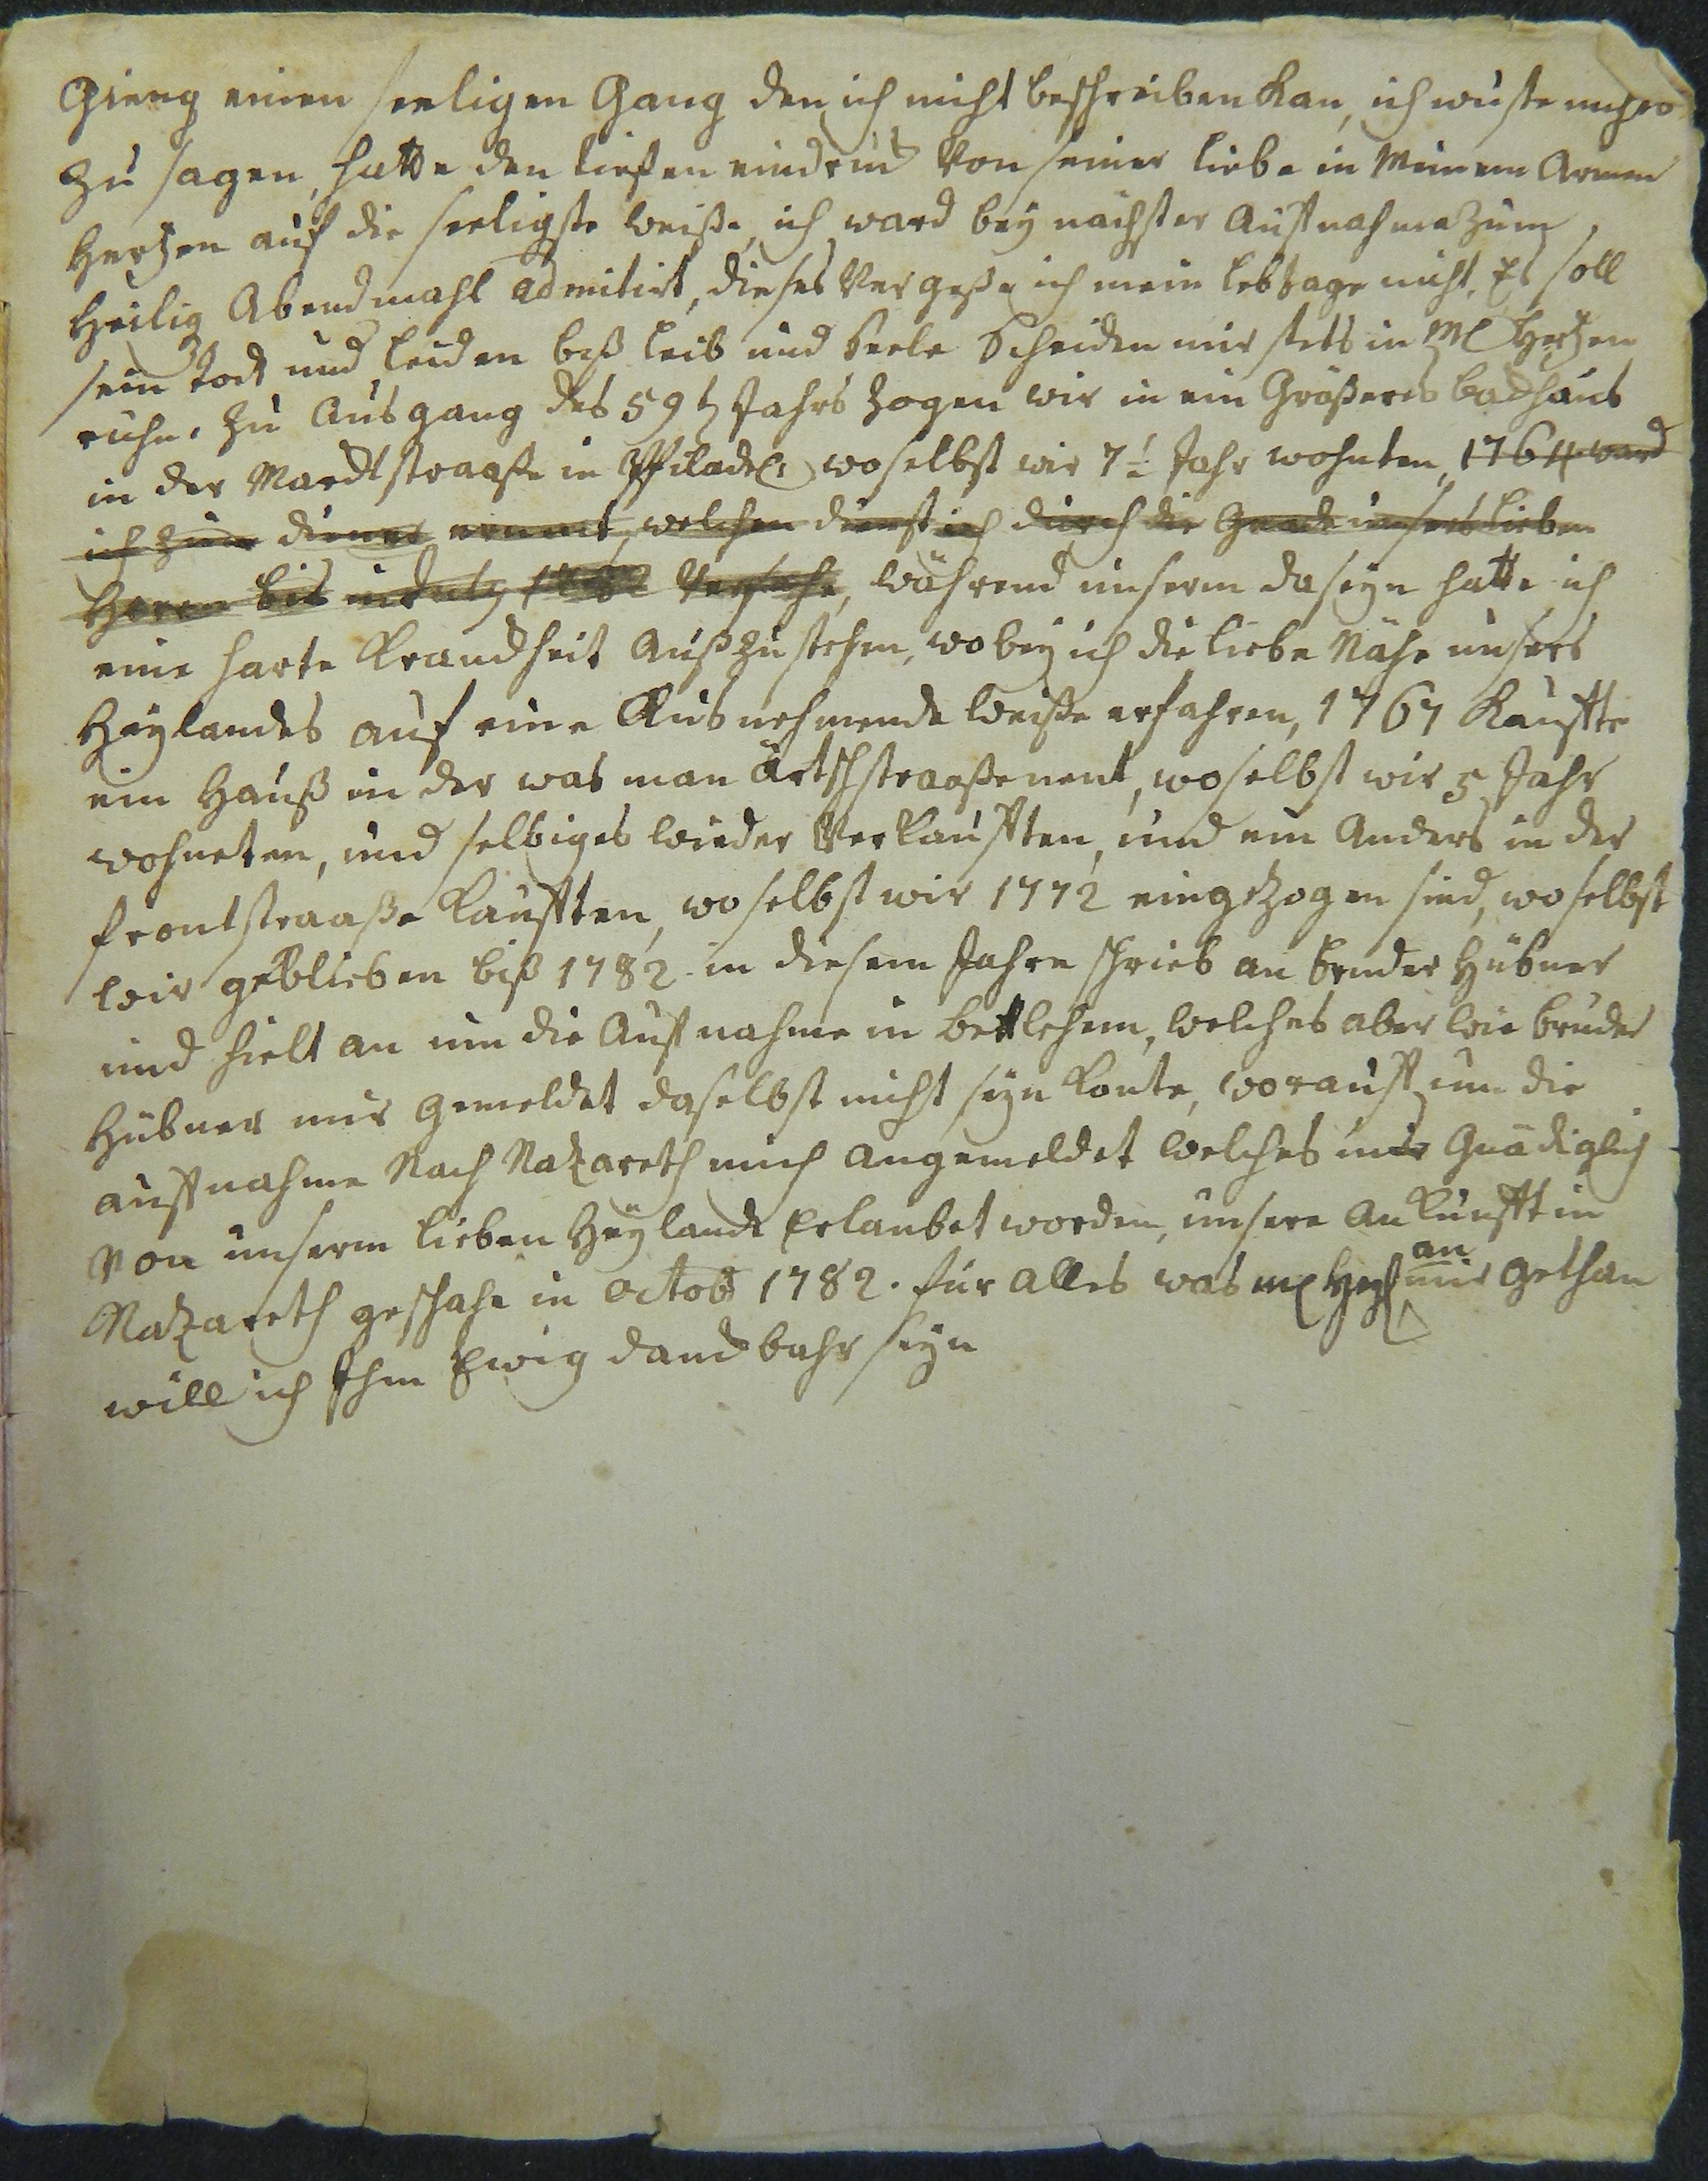 Gieng einen seeligen Gang den ich nicht beschreiben kan, ich wuste nichts
zu sagen, hatte den tiefen eindruck von seiner liebe in Meinem Armen
Hertzen auf die seeligste weiße, ich ward bey nächster Aufnahme zum
Heilig Abendmahl admitirt, dieses Vergeße ich mein lebtage nicht. Es soll
sein todt und leiden biß leib und Seele Scheiden mir stets in M Hertzen
ruhn. zu Ausgang des 59 Jahrs zogen wir in ein Größeres backhaus
in der Marcktstraaße in Philadel: woselbst wir 7½ Jahr wohnten, 1764 ward
ich zum diener ernant, welchen dienst ich durch die Gnade unsers lieben
Herrn bis in July 1782 Versahe, während unserm daseyn hatte ich
eine harte Kranckheit Außzustehen, wobey ich die liebe Nähe unsers
Heylandes auf eine Ausnehmende weiße erfahren, 1767 kauffte
ein Hauß in der was man Ärtschstraaße nent, woselbst wir 5 Jahr
wohneten, und selbiges wieder Verkaufften, und ein Anders in der
frontstraaße kaufften, woselbst wir 1772 eingezogen sind, woselbst
wir geblieben biß 1782 in diesem Jahre schrieb an bruder Hübner
und hielt an um die Aufnahme in bethlehem, welches aber wie bruder
Hübner mir gemeldet daselbst nicht seyn konte, worauff um die
auffnahme Nach Nazareth mich angemeldet welches mir Gnädiglich
von unserm lieben Heylande Erlaubet worden, unsere Ankunfft in
Nazareth geschahe in Octob 1782. für alles was m Heyl an mir gethan
will ich Ihm Ewig danckbahr seyn